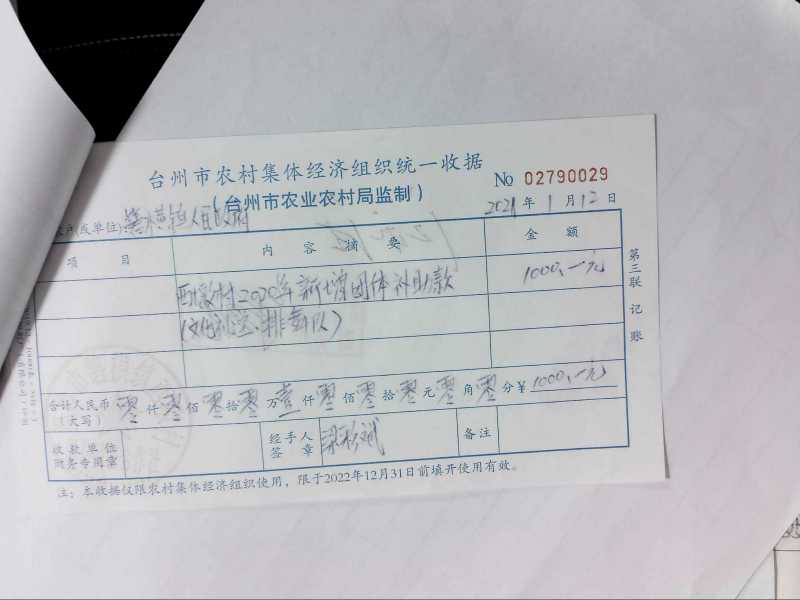 台州市农村集体经济组织统一收据
(台州市农业农村局监制)
No 02790029
2021年1月12日
户(或单位):横镇人民政府
项目 内容摘要 金额
村2020年新增团体补助款 1000.一元
(文化礼堂:排舞队)
合计人民币(大写) 零仟零佰零拾零万壹仟零佰零拾零元零角零分¥1000.一元
收款单位财务专用章 经手人签章 备注
第三联 记账
注:本收据仅限农村集体经济组织使用,限于2022年12月31日前填开使用有效。